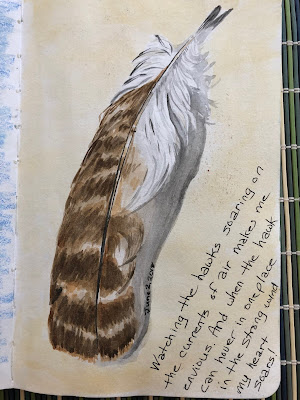 Watching the hawks soaring on
the currents of air makes me
envious. And when the hawk
can hover in one place
in the strong wind
my heart
soars!